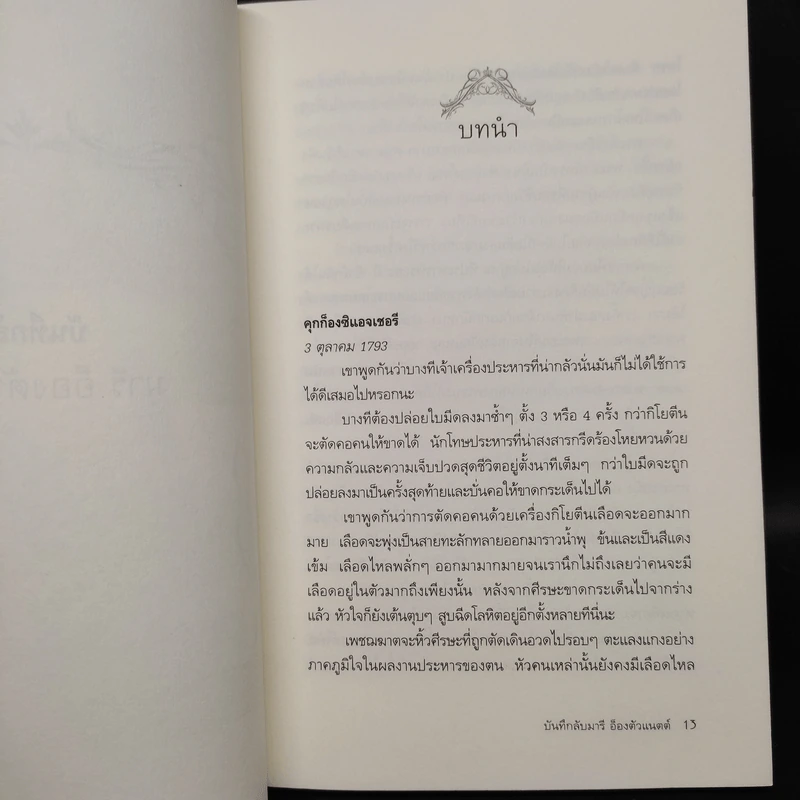 บทนำ
คุกก็องซิแอจเชอรี
3 ตุลาคม 1793
เขาพูดกันว่าบางทีเจ้าเครื่องประหารที่น่ากลัวนั่นมันก็ไม่ได้ใช้การ
ได้ดีเสมอไปหรอกนะ
บางทีต้องปล่อยใบมีดลงมาซ้ำๆ ตั้ง 3 หรือ 4 ครั้ง กว่ากิโยตีน
จะตัดคอคนให้ขาดได้ นักโทษประหารที่น่าสงสารกรีดร้องโหยหวนด้วย
ความกลัวและความเจ็บปวดสุดชีวิตอยู่ตั้งนาทีเต็มๆ กว่าใบมีดจะถูก
ปล่อยลงมาเป็นครั้งสุดท้ายและบั่นคอให้ขาดกระเด็นไปได้
เขาพูดกันว่าการตัดคอคนด้วยเครื่องกิโยตีนเลือดจะออกมาก
มาย เลือดจะพุ่งเป็นสายทะลักทลายออกมาราวน้ำพุ ข้นและเป็นสีแดง
เข้ม เลือดไหลพลั่กๆ ออกมามากมายจนเรานึกไม่ถึงเลยว่าคนจะมี
เลือดอยู่ในตัวมากถึงเพียงนั้น หลังจากศีรษะขาดกระเด็นไปจากร่าง
แล้ว หัวใจก็ยังเต้นตุบๆ สูบฉีดโลหิตอยู่อีกตั้งหลายทีนี่นะ
เพชฌฆาตจะหิ้วศีรษะที่ถูกตัดเดินอวดไปรอบๆ ตะแลงแกงอย่าง
ภาคภูมิใจในผลงานประหารของตน หัวคนเหล่านั้นยังคงมีเลือดไหล
บันทึกลับมารี อ็องตัวแนตต์ 13